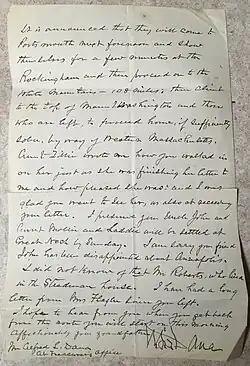 It is announced that they will come to
Portsmouth next forenoon and show
themselves for a few minutes at the
Rockingham and then proceed on to the
White Mountains - 108 miles, then climb
to the top of Mount Washington and those
who are left to proceed home, if sufficiently
sober, by way of Western Massachusetts.
Aunt wrote me how you walked in
on her just as she was finishing her letter to
me and how pleased she was; and I was
glad you went to see her, as also at receiving
your letter. I presume you Uncle John and
Aunt Mollie and will be settled at
Great Neck by Sunday. I am sorry you find
John has been disappointed about Annapolis.
I did not know of that Mr Roberts, who lived
in the Steadman house. I have had a long
letter from Mrs since you left.
I hope to hear from you when you get back
from the you will start on this morning
Affectionately your grandfather
Mr Alfred L. Davis
At Office